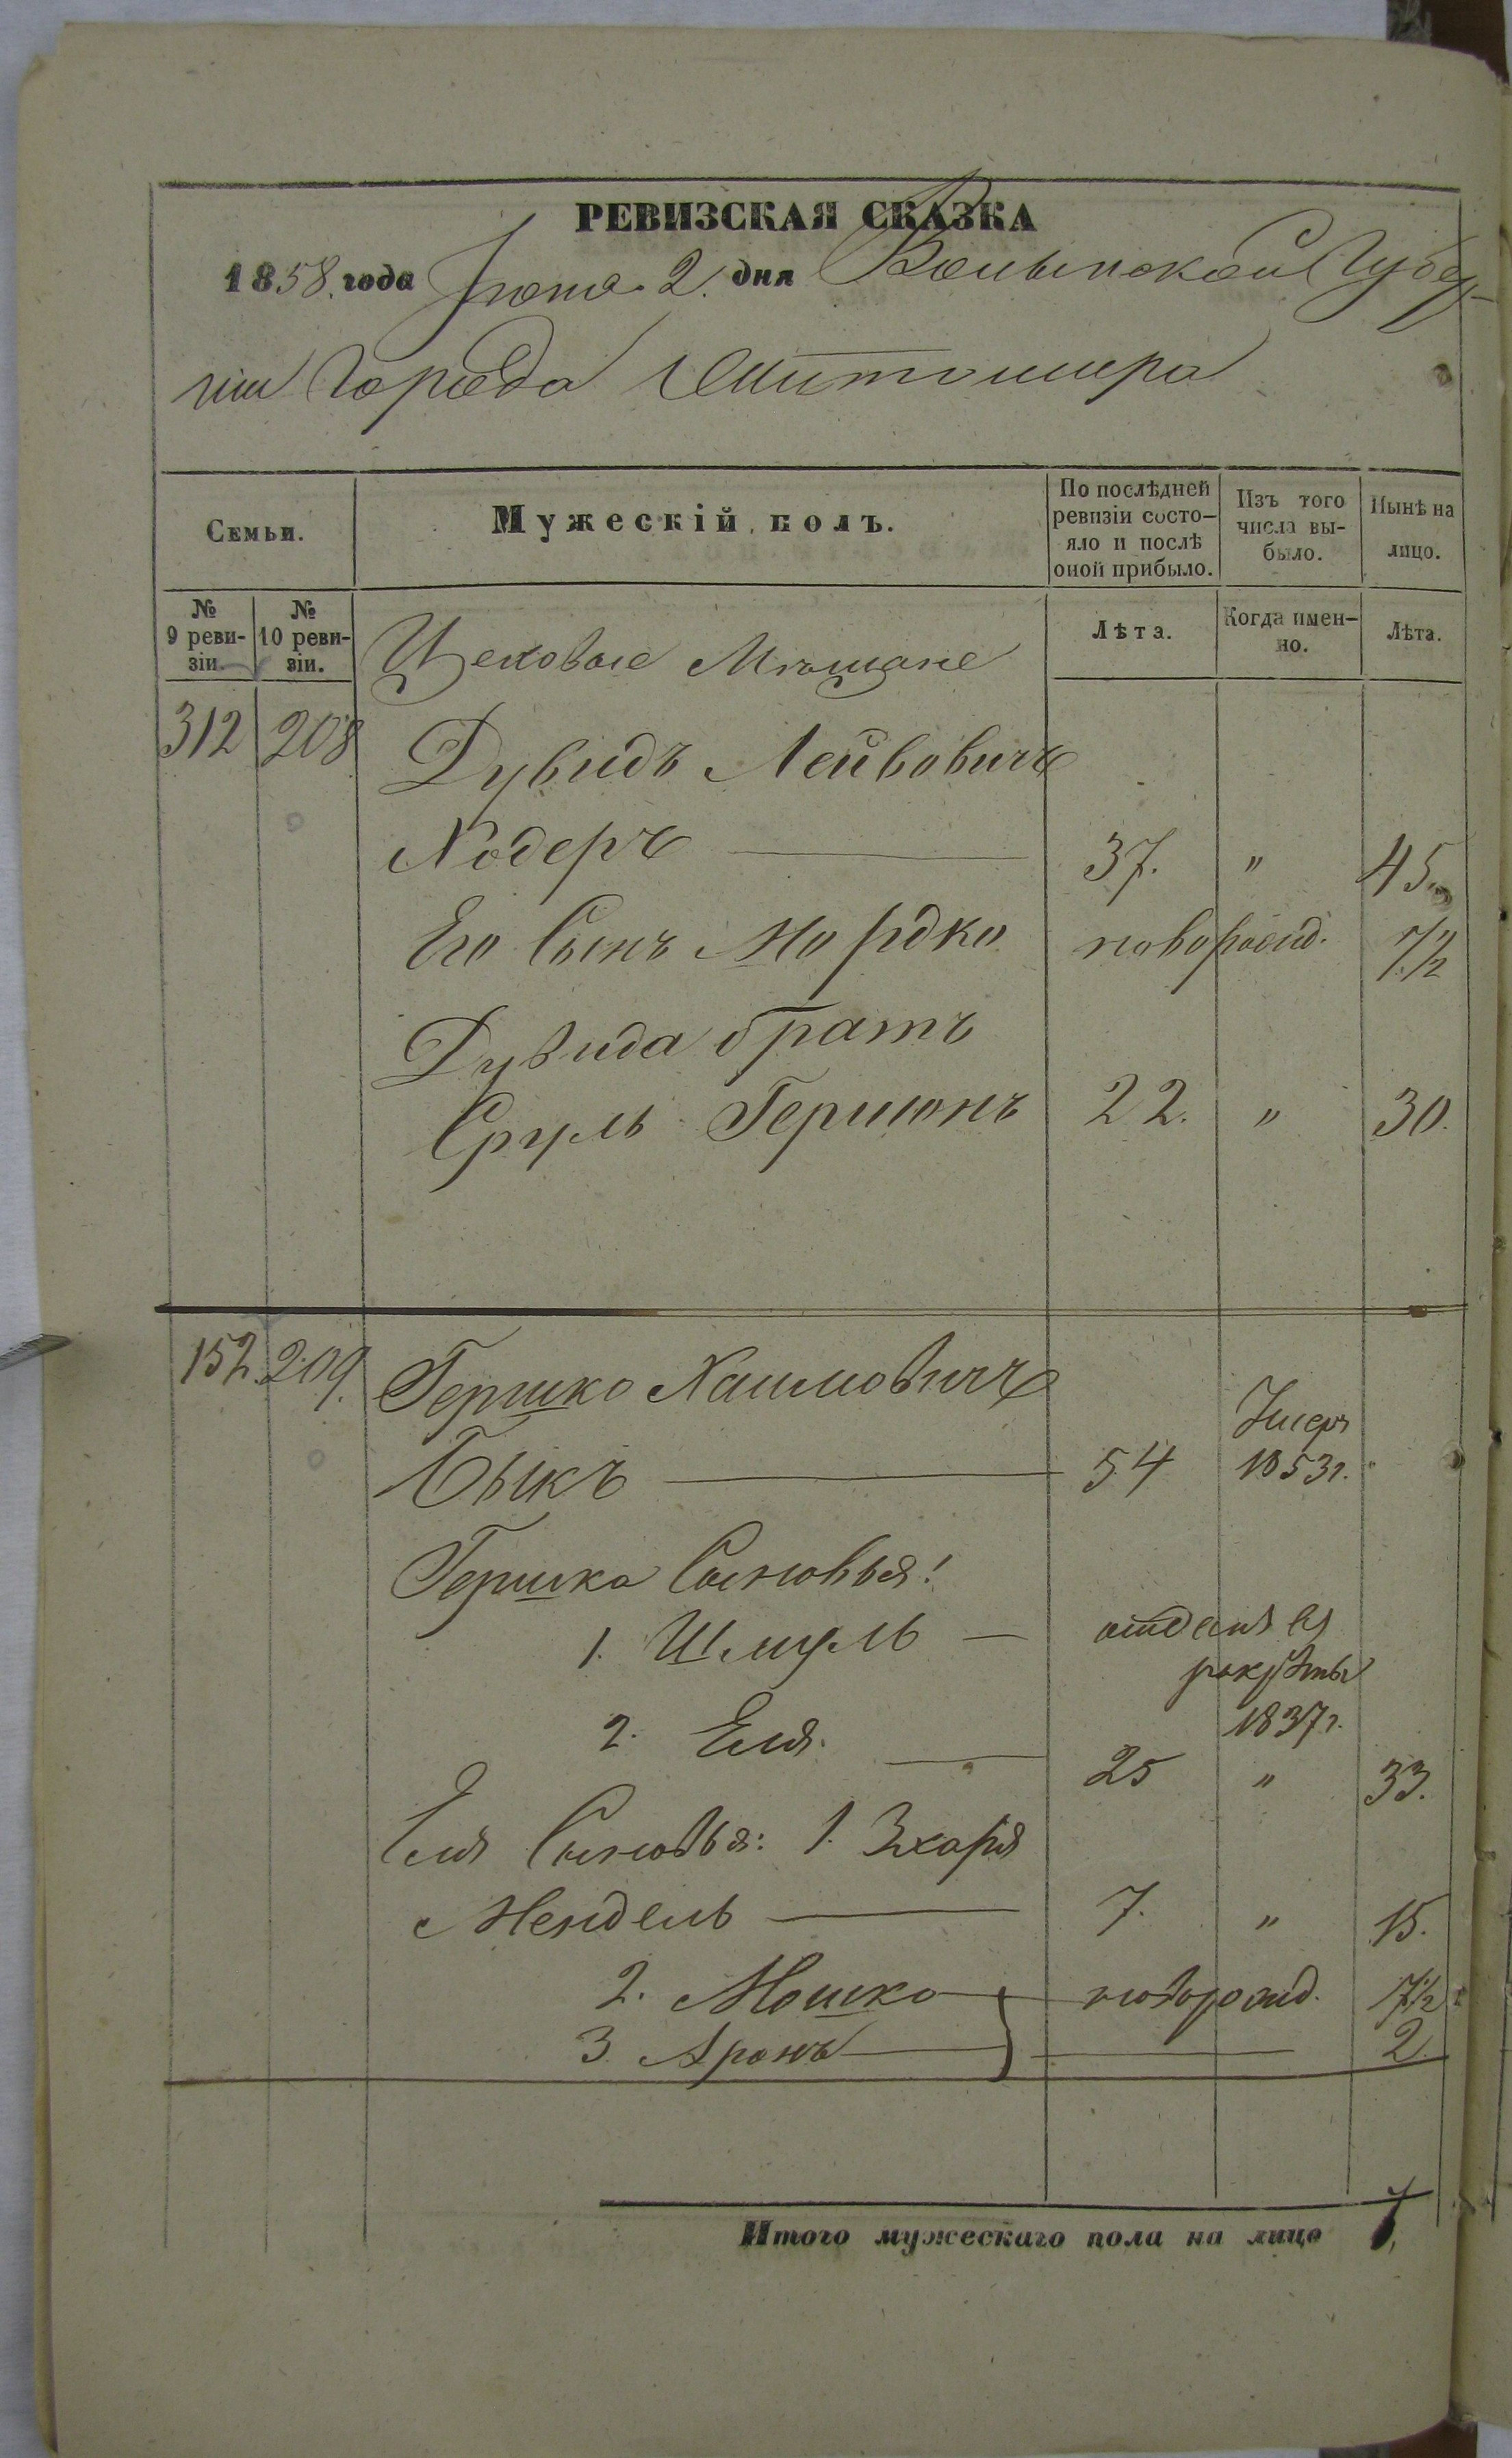 РЕВИЗСКАЯ СКАЗКА
1858. года Іюня 2. дня Волынской Губер-
ніи Города Житомира
Семьи.
Мужескій полъ.
По послѣдней ревизіи состо-яло и послѣ оной прибыло.
Изъ того числа вы-было.
Нынѣ на лицо.
№ 9 реви-зіи.
№ 10 реви-зіи.
Лѣта.
Когда имен-но.
Лѣта.
Цеховые Мѣщане
312 208 Дувидъ Лейбовичъ
Ходеръ 37. " 45.
Его Сынъ Мордко новорожд. 7½
Дувида братъ
Сруль Гершонъ 22. " 30.
152. 209. Гершко Хаимовичъ
Быкъ 54 Умеръ 1853г. "
Гершка Сыновья:
1. Шмуль — отданъ въ
рекруты
1837г.
2. Еля. 25 " 33.
Еля Сыновья: 1. Зхарія
Мендель 7. " 15.
2. Мошко новорожд. 7½
3 Аронъ 2
Итого мужескаго пола на лицо 7.